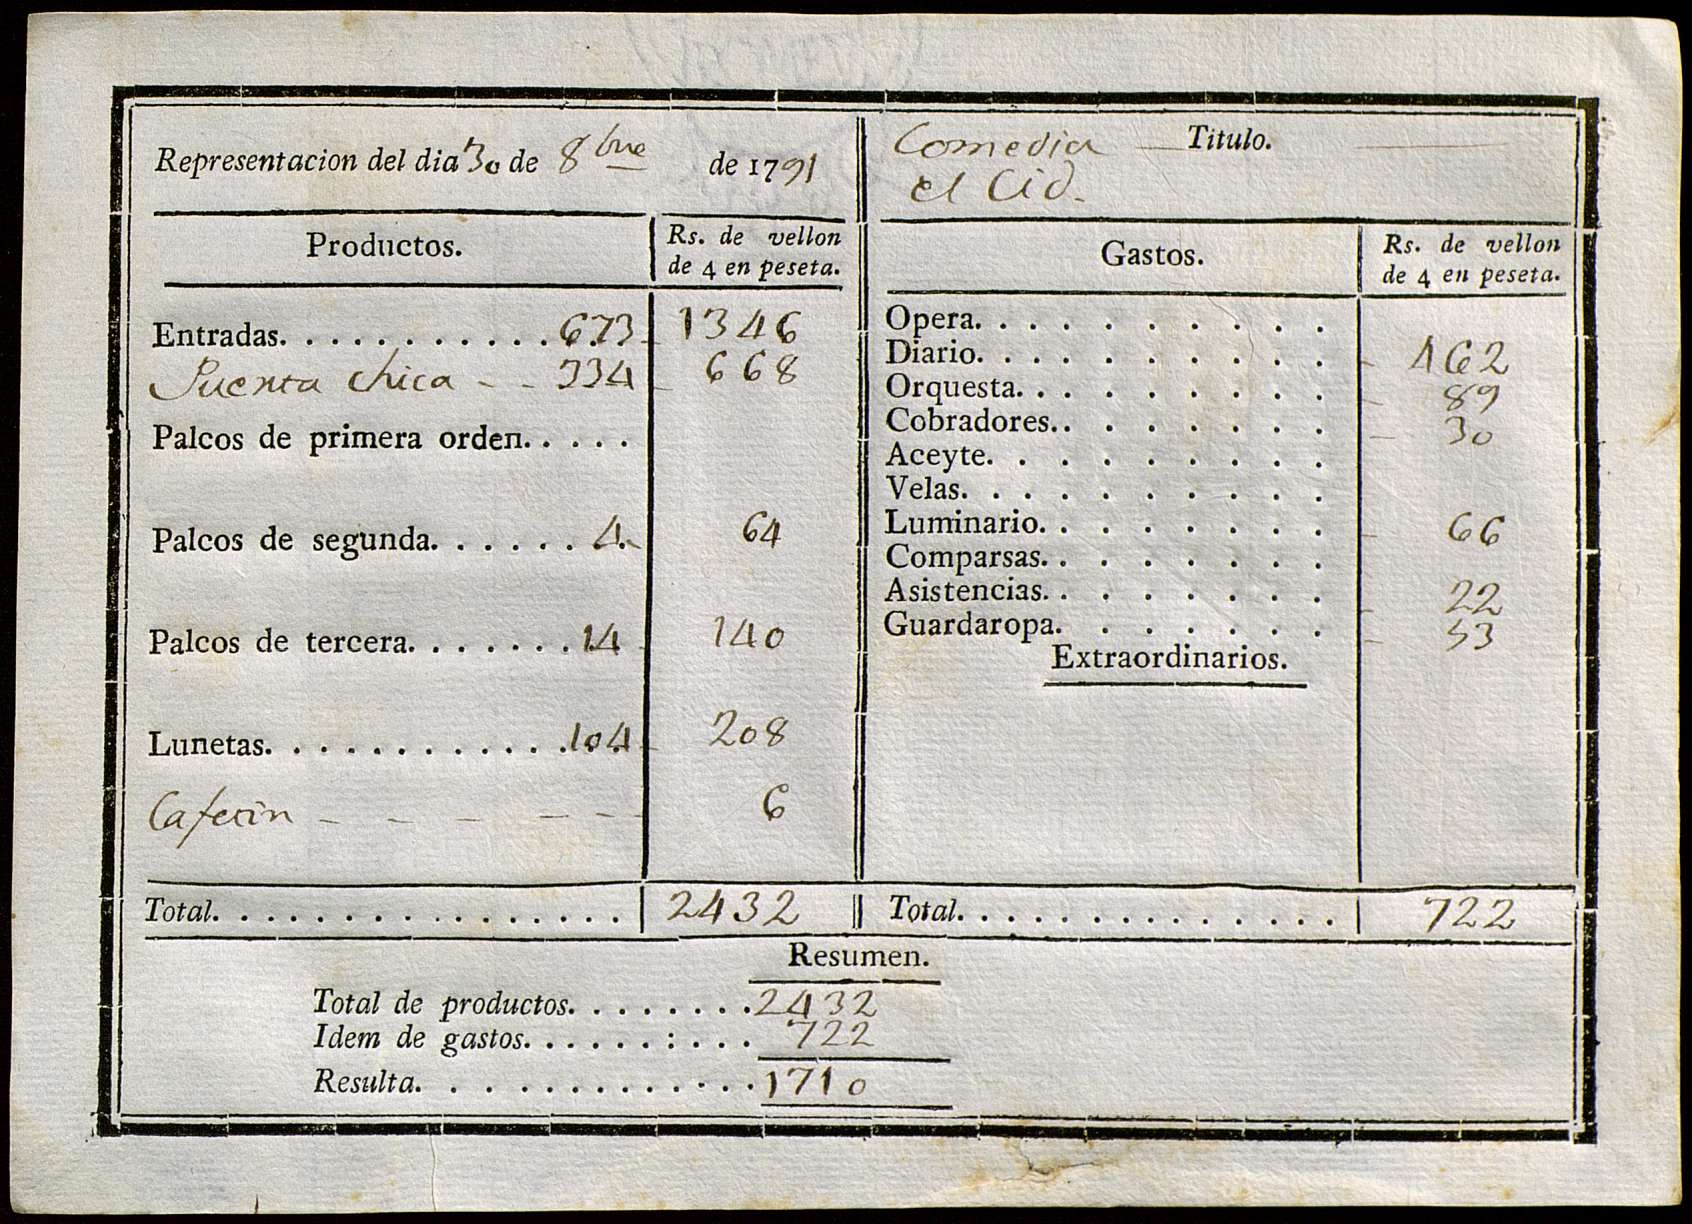 Representacion del dia 30 de 8bre de 1791
Comedia Titulo.
el Cid.
Productos. Rs. de vellon
de 4 en peseta.
Entradas. . . . . . . . . . . . 673 1346
Puerta chica - - 334 668
Palcos de primera orden. . . . .
Palcos de segunda. . . . . . 4. 64
Palcos de tercera. . . . . . . 14 140
Lunetas. . . . . . . . . . . . 104 208
Cafetin - - - - - - 6
Total. . . . . . . . . . . . . . . . 2432
Gastos. Rs. de vellon
de 4 en peseta.
Opera. . . . . . . . . .
Diario. . . . . . . . . . 462
Orquesta. . . . . . . . . 89
Cobradores. . . . . . . . 30
Aceyte. . . . . . . . . .
Velas. . . . . . . . . .
Luminario. . . . . . . . 66
Comparsas. . . . . . . .
Asistencias. . . . . . . . 22
Guardaropa. . . . . . . 53
Extraordinarios.
Total. . . . . . . . . . . . . . 722
Resumen.
Total de productos. . . . . . . . 2432
Idem de gastos. . . . . . : . . . 722
Resulta. . . . . . . . . . . . . 1710